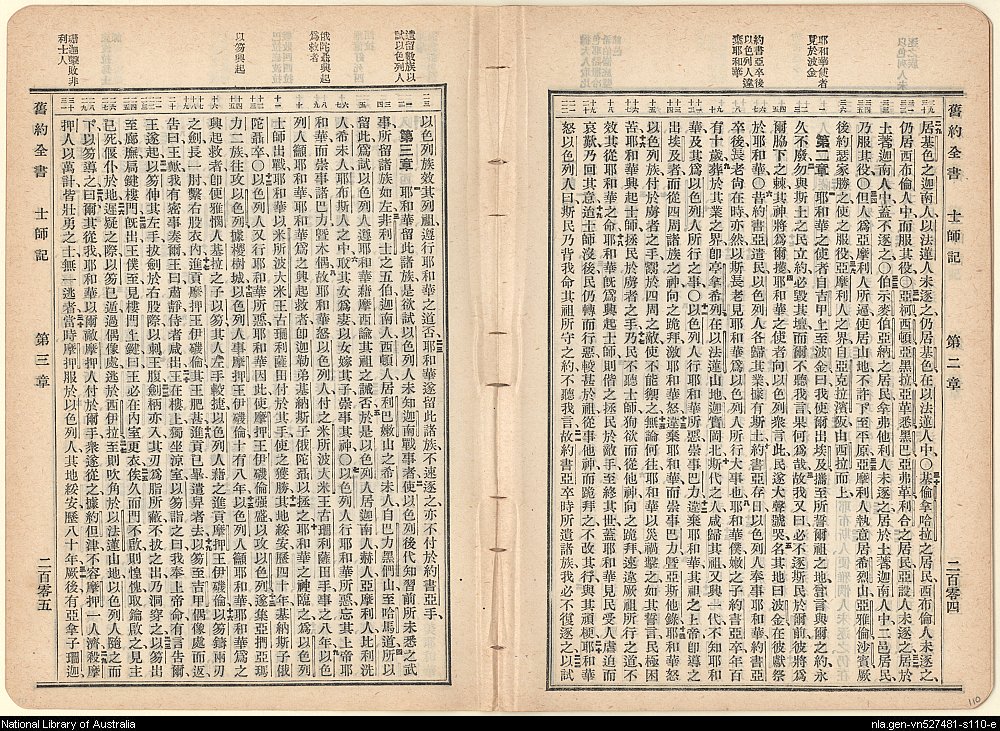 耶和華使者
見於波金
約書亞卒後
以色列人違
棄耶和華
舊約全書　士師記　第二章　二百零四
居基色之迦南人以法蓮人未逐之仍居基色在以法蓮人中〇基倫拿哈拉之居民西布倫人未逐之、
仍居西布倫人中而服其役〇亞柯西頓亞黑拉亞革悉黑巴亞弗革利合之居民亞設人未逐之居於
土著迦南人中蓋不逐之〇伯示麥伯亞納之居民拿弗他利人未逐之居於土著迦南人中二邑居民
乃服其役〇但人為亞摩利人所逼使居山地不許下至平原亞摩利人執意居希烈山亞雅倫沙賓厥
後約瑟家勝之使之服役亞摩利人之界自亞克拉濱阪由西拉而上
第二章　耶和華之使者自吉甲上至波金曰我使爾出埃及攜至所誓爾祖之地嘗言與爾之約永
久不廢勿與斯土之民立約必毀其壇而爾不聽我言果何為哉故我又曰必不逐斯民於爾前彼將為
爾脇下之棘其神將為爾擭耶和華之使者向以色列眾言此民遂大聲號哭名其地曰波金在彼獻祭
耶和華〇昔約書亞遣民以色列人各歸其業據有斯土約書亞存日以色列人奉事耶和華約書亞
卒後長老尚在時亦然以斯長老見耶和華為以色列人所行大事也耶和華僕嫩之子約書亞卒年百
有十歲葬於其業之界即亭拿希列在以法蓮山地迦實岡北斯代之人咸歸其祖又興一代不知耶和
華及其所行於以色列人之事〇以色列人行耶和華所惡崇事巴力違棄耶和華其列祖之上帝即導之
出埃及者而從四周諸族之神向之跪拜激耶和華怒違棄耶和華而崇事巴力暨亞斯他錄耶和華怒
以色列族付於虜者之手鬻於四周之敵使不能禦之無論何往耶和華以災禍擊之如其誓言民極困
苦耶和華興起士師拯民於虜者之手乃民不聽士師狥欲而從他神向之跪拜速離厥祖所行之道不
效其從耶和華命耶和華既為興起士師則偕之拯民於敵手至終其世蓋耶和華見民受人虐迫而
哀歎乃回其意迨士師沒後民仍轉而行惡較甚於祖從事他神而跪拜之不改其行與其頑梗耶和華
怒以色列人曰斯民乃背我命其祖所守之約不聽我言故約書亞卒時所遺諸族我必不復逐之以試
遺留數族以
試以色列人
俄陀聶興起
為救者
以笏興起
珊迦擊敗非
利士人
以色列族效其列祖遵行耶和華之道否耶和華遂留此諸族不速逐之亦不付於約書亞手、
第三章　耶和華留此諸族是欲試以色列人未知迦南戰事者使以色列後代知習前所未悉之武
事所留諸族如左非利士之五伯迦南人西頓人居利巴嫩山之希未人自巴力黑們山至哈馬道所以
留此為試以色列人遵耶和華藉摩西諭其祖之誡否於是以色列人居迦南人赫人亞摩利人比利洗
人希未人耶布斯人之中取其女為妻以女嫁其子崇事其神〇以色列人行耶和華所惡忘其上帝耶
和華而崇事諸巴力暨木偶故耶和華怒以色列人付之米所波大米王古珊利薩田手事之八年以色
列人籲耶和華耶和華為之興起救者即迦勒弟基納斯子俄陀聶以拯之耶和華之神臨之為以色列
士師出戰耶和華以米所波大米王古珊利薩田付於其手使之獲勝其地綏安歷四十年基納斯子俄
陀聶卒〇以色列人又行耶和華所惡耶和華因此使摩押王伊磯倫強盛以攻以色列遂集亞捫亞瑪
力二族往攻以色列據椶樹城以色列人事摩押王伊磯倫十有八年以色列人籲耶和華耶和華為之
興起救者即便雅憫人基拉之子以笏其人左手較捷以色列人藉之進貢摩押王伊磯倫以笏鑄兩刃
之劍長一肘繫右股衣內進貢摩押王伊磯倫其王肥甚進貢已畢遣舁者去以笏至吉甲偶像處而返
告曰王歟我有密事奏爾王曰肅靜侍者咸出王在樓上獨坐涼室以笏詣之曰我奉上帝命有言告爾
王遂起以笏伸其左手拔劍於右股際以刺王腹劍柄亦入其刃為脂所蔽不拔之出乃洞穿之以笏出
至廊廡局鍵樓門既出王僕至見樓門上鍵曰王必在內室更衣俟久而門不啟則惶愧取鑰啟之見主
已死偃仆於地遲疑之際以笏已遁過偶像處逃於西伊拉至則吹角於以法蓮山地以色列人隨之而
下以笏導之曰爾其從我耶和華以爾敵摩押人付於爾手眾遂從之據約但津不容摩押一人濟殺摩
押人以萬計皆壯勇之士無一逃者當時摩押服於以色列人其地綏安歷八十年厥後有亞拿子珊迦
舊約全書　士師記　第三章　二百零五
110
National Library of Australia
nla.gen-vn527481-s110-e